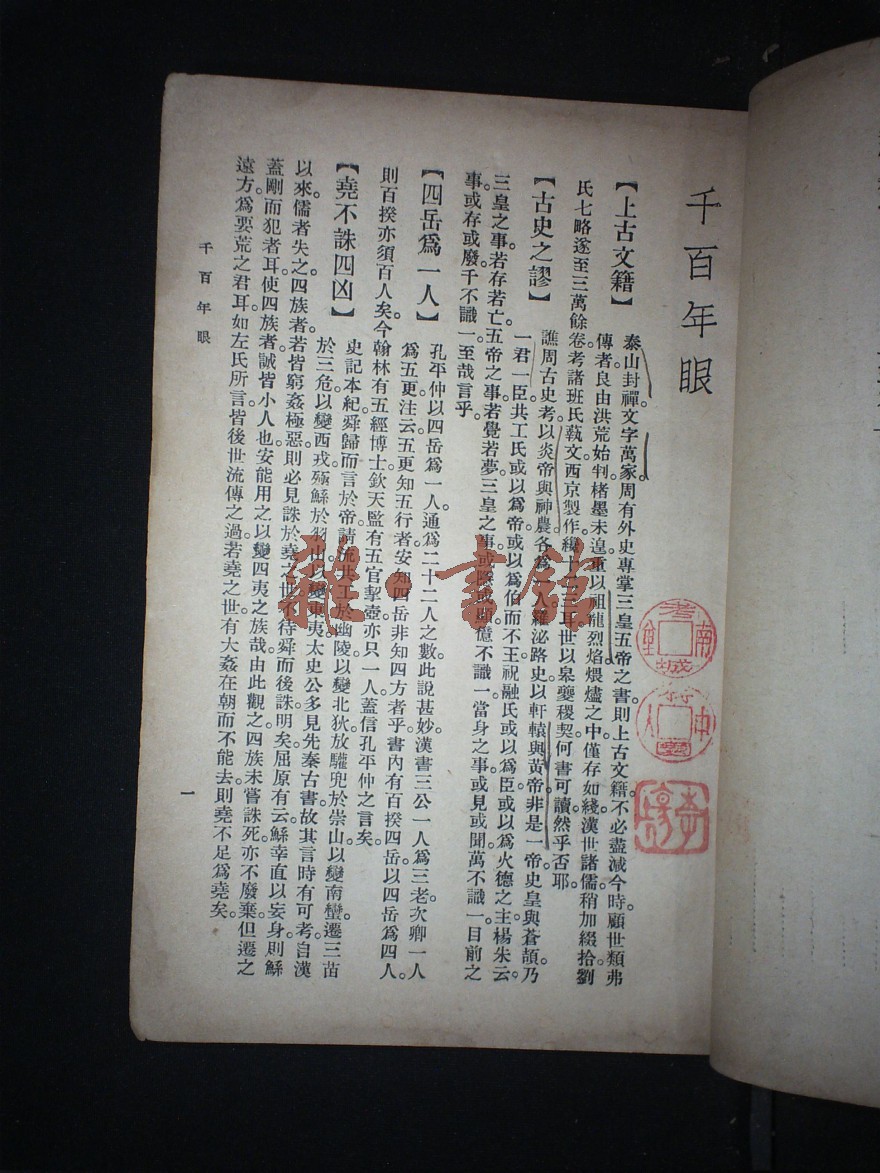 千百年眼
【上古文籍】泰山封禪文字萬家。周有外史專掌三皇五帝之書。則上古文籍。不必盡減今時。顧世類弗
傳者。良由洪荒始判。楮墨未遑。重以祖龍烈焰。煨燼之中。僅存如綫。漢世諸儒。稍加綴拾。劉
氏七略。遂至三萬餘卷。考諸班氏藝文。西京製作。纔十二三耳。世以皋夔稷契。何書可讀。然乎否耶。
【古史之謬】譙周古史考。以炎帝與神農各為一人。羅泌路史。以軒轅與黃帝非是一帝。史皇與蒼頡。乃
一君一臣。共工氏或以為帝。或以為伯而不王。祝融氏或以為臣。或以為火德之主。楊朱云。
三皇之事。若存若亡。五帝之事。若覺若夢。三皇之事。或隱或顯。億不識一。當身之事。或見或聞。萬不識一。目前之
事。或存或廢。千不識一。至哉言乎。
【四岳為一人】孔平仲以四岳為一人。通為二十二人之數。此說甚妙。漢書三公一人為三老。次卿一人
為五更。注云。五更知五行者。安知四岳非知四方者乎。書內有百揆四岳。以四岳為四人。
則百揆亦須百人矣。今翰林有五經博士。欽天監有五官挈壺。亦只一人。蓋信孔平仲之言矣。
【堯不誅四凶】史記本紀。舜歸而言於帝。請流共工於幽陵。以變北狄。放驩兜於崇山。以變南蠻。遷三苗
於三危。以變西戎。殛鯀於羽山。以變東夷。太史公多見先秦古書。故其言時有可考。自漢
以來。儒者失之。四族者。若皆窮姦極惡。則必見誅於堯之世。不待舜而後誅明矣。屈原有云。鯀幸直以妄身。則鯀
蓋剛而犯者耳。使四族者。誠皆小人也。安能用之以變四夷之族哉。由此觀之。四族未嘗誅死。亦不廢棄。但遷之
遠方。為要荒之君耳。如左氏所言。皆後世流傳之過。若堯之世。有大姦在朝而不能去。則堯不足為堯矣。
千百年眼
一
雜·書館